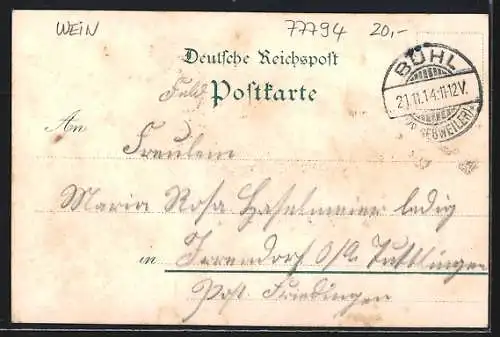 WEIN 77794 20,-
Deutsche Reichspost
Feld Postkarte
BÜHL
21.11.14.11-12V.
GEBWEILER
An Freulein
Maria Rosa Haselmeier ledig
in Irrendorf O/A Tuttlingen
Post. Friedingen